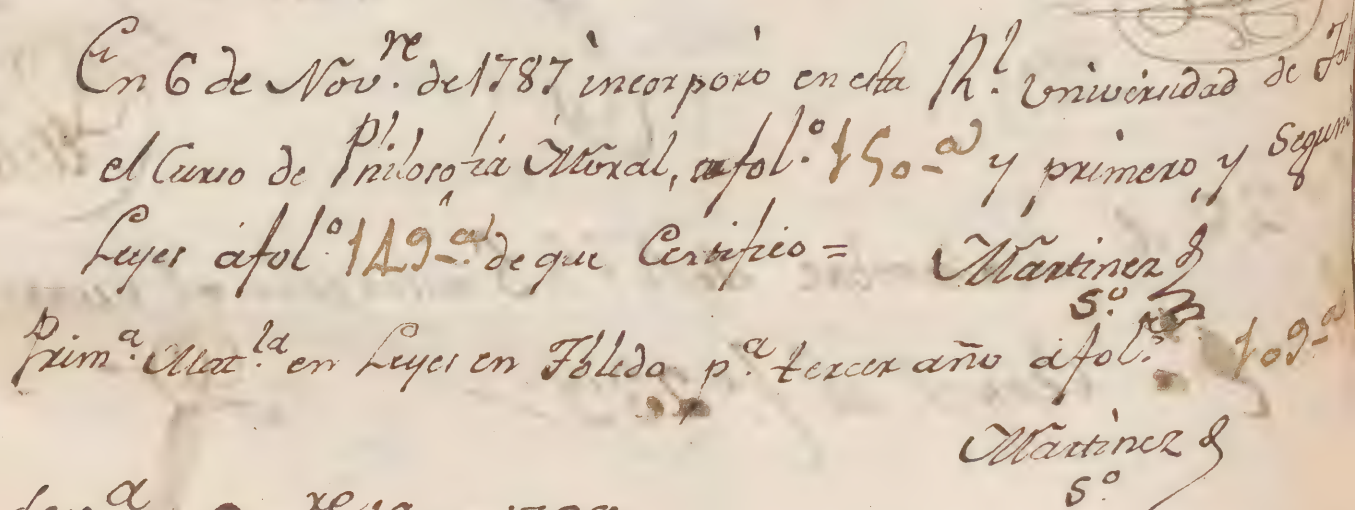 En 6 de Nov.re de 1787 incorporó en esta Rl. Universidad de Tol
el Curso de Philosofia Moral, a fol.o 150-a y primero, y Segun
Leyes á fol.o 149-a de que Certifico = Martinez
S.o
Prim.a Mat.la en Leyes en Toledo p.a tercer año á fol.o 109-a
Martinez
S.o